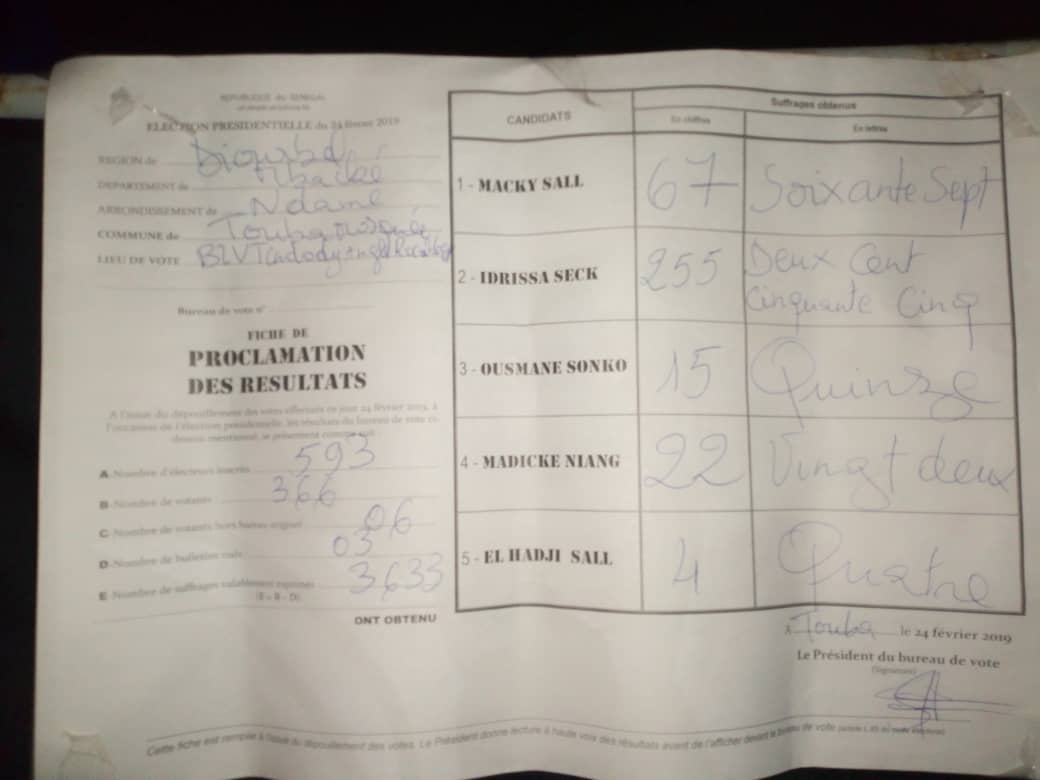 REPUBLIQUE du SENEGAL
ELECTION PRESIDENTIELLE du 24 février 2019
REGION de Diourbel
DEPARTEMENT de Mbacké
ARRONDISSEMENT de Ndame
COMMUNE de Touba mosquée
LIEU DE VOTE
Bureau de vote n°
FICHE DE
PROCLAMATION
DES RESULTATS
A l'issue du dépouillement des votes effectués ce jour 24 février 2019, à
l'occasion de l'élection présidentielle, les résultats du bureau de vote ci-
dessus mentionné, se présentent comme suit
A- Nombre d'électeurs inscrits 593
B- Nombre de votants 366
C- Nombre de votants hors bureau 06
D- Nombre de bulletins nuls 03
E- Nombre de suffrages valablement exprimés 3633
(E = B - D)
ONT OBTENU
CANDIDATS
Suffrages obtenus
En chiffres En lettres
1 - MACKY SALL 67 Soixante Sept
2 - IDRISSA SECK 255 Deux Cent
Cinquante Cinq
3 - OUSMANE SONKO 15 Quinze
4 - MADICKE NIANG 22 Vingt deux
5 - EL HADJI SALL 4 Quatre
A Touba le 24 février 2019
Le Président du bureau de vote
(Signature)
Cette fiche est remplie à l'issue du dépouillement des votes. Le Président donne lecture à haute voix des résultats avant de l'afficher devant le bureau de vote